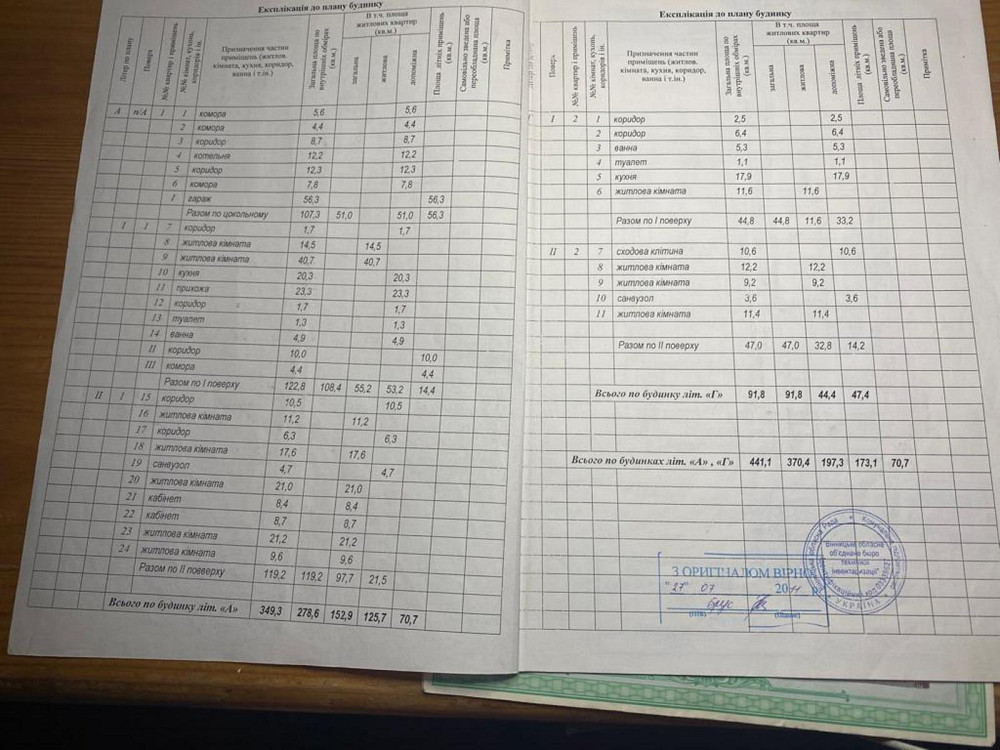 Експлікація до плану будинку
Літер по плану
Поверх
№№ квартир і приміщень
№№ кімнат, кухонь, коридорів і ін.
Призначення частин приміщень (житлов. кімната, кухня, коридор, ванна і т.ін.)
Загальна площа по внутрішніх обмірах (кв.м.)
В т.ч. площа житлових квартир (кв.м.)
загальна
житлова
допоміжна
Площа літніх приміщень (кв.м.)
Самовільно зведена або переобладнана площа (кв.м.)
Примітка
А п/А 1 1 комора 5,6 5,6
2 комора 4,4 4,4
3 коридор 8,7 8,7
4 котельня 12,2 12,2
5 коридор 12,3 12,3
6 комора 7,8 7,8
I гараж 56,3 56,3
Разом по цокольному 107,3 51,0 51,0 56,3
I 1 7 коридор 1,7 1,7
8 житлова кімната 14,5 14,5
9 житлова кімната 40,7 40,7
10 кухня 20,3 20,3
11 прихожа 23,3 23,3
12 коридор 1,7 1,7
13 туалет 1,3 1,3
14 ванна 4,9 4,9
II коридор 10,0 10,0
III комора 4,4 4,4
Разом по I поверху 122,8 108,4 55,2 53,2 14,4
II 1 15 коридор 10,5 10,5
16 житлова кімната 11,2 11,2
17 коридор 6,3 6,3
18 житлова кімната 17,6 17,6
19 санвузол 4,7 4,7
20 житлова кімната 21,0 21,0
21 кабінет 8,4 8,4
22 кабінет 8,7 8,7
23 житлова кімната 21,2 21,2
24 житлова кімната 9,6 9,6
Разом по IIповверху 119,2 119,2 97,7 21,5
Всього по будинку літ. «А» 349,3 278,6 152,9 125,7 70,7
Експлікація до плану будинку
Поверх
№№ квартир і приміщень
№№ кімнат, кухонь, коридорів і ін.
Призначення частин приміщень (житлов. кімната, кухня, коридор, ванна і т.ін.)
Загальна площа по внутрішніх обмірах (кв.м.)
В т.ч. площа житлових квартир (кв.м.)
загальна
житлова
допоміжна
Площа літніх приміщень (кв.м.)
Самовільно зведена або переобладнана площа (кв.м.)
Примітка
I 2 1 коридор 2,5 2,5
2 коридор 6,4 6,4
3 ванна 5,3 5,3
4 туалет 1,1 1,1
5 кухня 17,9 17,9
6 житлова кімната 11,6 11,6
Разом по I поверху 44,8 44,8 11,6 33,2
II 2 7 сходова клітина 10,6 10,6
8 житлова кімната 12,2 12,2
9 житлова кімната 9,2 9,2
10 санвузол 3,6 3,6
11 житлова кімната 11,4 11,4
Разом по II поверху 47,0 47,0 32,8 14,2
Всього по будинку літ. «Г» 91,8 91,8 44,4 47,4
Всього по будинках літ. «А» , «Г» 441,1 370,4 197,3 173,1 70,7
З ОРИГІНАЛОМ ВІРНО
"27" 07 2011 р.
(підпис)
Вінницьке обласне
об'єднане бюро
технічної
інвентаризації
УКРАЇНА